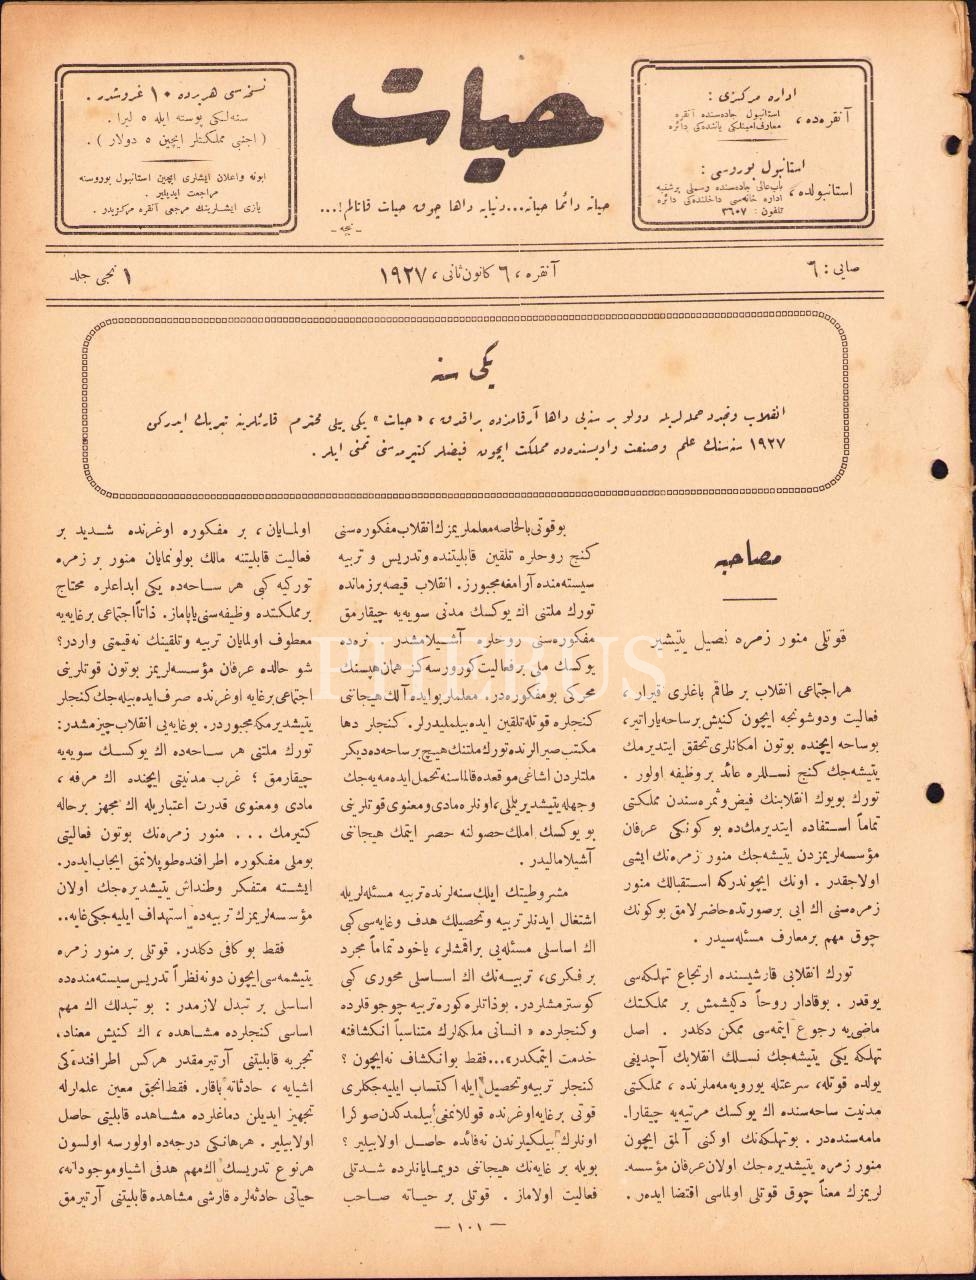 اداره مركزی :
آنقره‌ده ، استانبول جاده‌سنده آنقره
معارف امینلكی یاننده‌كی دائره
استانبول بوروسی :
استانبولده ، باب عالی جاده‌سنده وسیملی پرشنبه
اداره خانه‌سی داخلنده‌كی دائره
تلفون : ٣٦٠٧
حیات
حیاته دائما حیاته... دنیایه داها چوق حیات قاتالم!...
- نیچه -
نسخه‌سی هر یرده ١٠ غروشدر .
سنه‌لكی پوسته ایله ٥ لیرا .
( اجنبی مملكتلر ایچین ٥ دولار ) .
ابونه واعلان ایشلری ایچین استانبول بوروسنه
مراجعت ایدیلیر .
یازی ایشلرینك مرجعی آنقره مركزیدر .
صایی : ٦
آنقره ، ٦ كانون ثانی ، ١٩٢٧
١ نجی جلد
یكی سنه
انقلاب و تجدد حمله‌لریله دولو بر سنه‌یی داها آرقامزده براقدق ، «حیات» یكی ییلی محترم قارئلرینه تبریك ایدركن
١٩٢٧ سنه‌سنك علم وصنعت وادیسنده‌ده مملكت ایچون فیضلر كتیرمه‌سنی تمنی ایلر .
مصاحبه
قوتلی منور زمره نصیل یتیشیر
هر اجتماعی انقلاب بر طاقم باغلری قیرار ،
فعالیت ودوشونجه ایچون كنیش بر ساحه یاراتیر،
بو ساحه ایچنده بوتون امكانلری تحقق ایتدیرمك
یتیشه‌جك كنج نسللره عائد بر وظیفه اولور .
تورك بویوك انقلابنك فیض وثمره‌سندن مملكتی
تماماً استفاده ایتدیرمك‌ده بو كونكی عرفان
مؤسسه‌لریمزدن یتیشه‌جك منور زمره‌نك ایشی
اولاجقدر . اونك ایچوندركه استقبالك منور
زمره‌سنی اك ایی بر صورتده حاضرلامق بوكونك
چوق مهم بر معارف مسئله‌سیدر .
تورك انقلابی قارشیسنده ارتجاع تهلكه‌سی
یوقدر . بوقادار روحاً دكیشمش بر مملكتك
ماضی‌یه رجوع ایتمه‌سی ممكن دكلدر . اصل
تهلكه یكی یتیشه‌جك نسلك انقلابك آچدیغی
یولده قوتله، سرعتله یورویه‌مه‌ملرنده ، مملكتی
مدنیت ساحه‌سنده اك یوكسك مرتبه‌یه چیقارا-
مامه‌سنده‌در . بو تهلكه‌نك اوكنی آلمق ایچون
منور زمره یتیشدیره‌جك اولان عرفان مؤسسه-
لریمزك معناً چوق قوتلی اولماسی اقتضا ایده‌ر .
بو قوتی بالخاصه معلملریمزك انقلاب مفكوره‌سنی
كنج روحلره تلقین قابلیتنده وتدریس و تربیه
سیستمنده آرامغه مجبورز. انقلاب قیصه بر زمانده
تورك ملتنی اك یوكسك مدنی سویه‌یه چیقارمق
مفكوره‌سنی روحلره آشیلامشدر . نره‌ده
یوكسك ملی بر فعالیت كورورسه‌كز همان هپسنك
محركی بو مفكوره‌در. معلملر بو ایده آلك هیجاننی
كنجلره قوتله تلقین ایده‌بیلملیدرلر. كنجلر دها
مكتب صیرالرنده تورك ملتنك هیچ بر ساحه‌ده دیكر
ملتلردن اشاغی موقعده قالماسنه تحمل ایده‌مه‌یه‌جك
وجهله یتیشدیریللی، اونلره مادی ومعنوی قوتلرینی
بو یوكسك املك حصولنه حصر ایتمك هیجاننی
آشیلامالیدر.
مشروطیتك ایلك سنه‌لرنده تربیه مسئله‌لریله
اشتغال ایدنلر تربیه وتحصیلك هدف وغایه‌سی كبی
اك اساسلی مسئله‌یی براقمشلر، یاخود تماماً مجرد
بر فكری، تربیه‌نك اك اساسلی محوری كبی
كوسترمشلردر. بو ذاتلره كوره تربیه چوجوقلرده
وكنجلرده « انسانی ملكه‌لرك متناسباً انكشافنه
خدمت ایتمكدر»... فقط بو انكشاف نه‌ایچون ؟
كنجلر تربیه وتحصیل ایله اكتساب ایلیه‌جكلری
قوتی بر غایه اوغرنده قوللانمغی بیلمدكدن صوكرا
اونلرك بیلكیلرندن نه فائده حاصل اولابیلیر ؟
بویله بر غایه‌نك هیجاننی دویمایانلرده شدتلی
فعالیت اولاماز . قوتلی بر حیاته صاحب
اولمایان، بر مفكوره اوغرنده شدید بر
فعالیت قابلیتنه مالك بولونمایان منور بر زمره
توركیه كبی هر ساحه‌ده یكی ابداعلره محتاج
بر مملكتده وظیفه‌سنی یاپاماز. ذاتاً اجتماعی بر غایه‌یه
معطوف اولمایان تربیه وتلقینك نه قیمتی واردر؟
شو حالده عرفان مؤسسه‌لریمز بوتون قوتلرینی
اجتماعی بر غایه اوغرنده صرف ایده‌بیله‌جك كنجلر
یتیشدیرمكه مجبوردر. بو غایه‌یی انقلاب چیزمشدر:
تورك ملتنی هر ساحه‌ده اك یوكسك سویه‌یه
چیقارمق ؛ غرب مدنیتی ایچنده اك مرفه ،
مادی ومعنوی قدرت اعتباریله اك مجهز بر حاله
كتیرمك ... منور زمره‌نك بوتون فعالیتی
بو ملی مفكوره اطرافنده طوپلانمق ایجاب ایده‌ر.
ایشته متفكر وطنداش یتیشدیره‌جك اولان
مؤسسه‌لریمزك تربیه‌ده استهداف ایلیه‌جكی غایه..
فقط بو كافی دكلدر. قوتلی بر منور زمره
یتیشمه‌سی ایچون دونه نظراً تدریس سیستمنده‌ده
اساسلی بر تبدل لازمدر : بو تبدلك اك مهم
اساسی كنجلرده مشاهده ، اك كنیش معناده،
تجربه قابلیتنی آرتیرمقدر هركس اطرافنده‌كی
اشیایه ، حادثاته باقار. فقط انجق معین علملرله
تجهیز ایدیلن دماغلرده مشاهده قابلیتی حاصل
اولابیلیر . هر هانكی درجه‌ده اولورسه اولسون
هر نوع تدریسك اك مهم هدفی اشیا وموجوداته،
حیاتی حادثه‌لره قارشی مشاهده قابلیتنی آرتیرمق
— ١٠١ —
PHEBUS